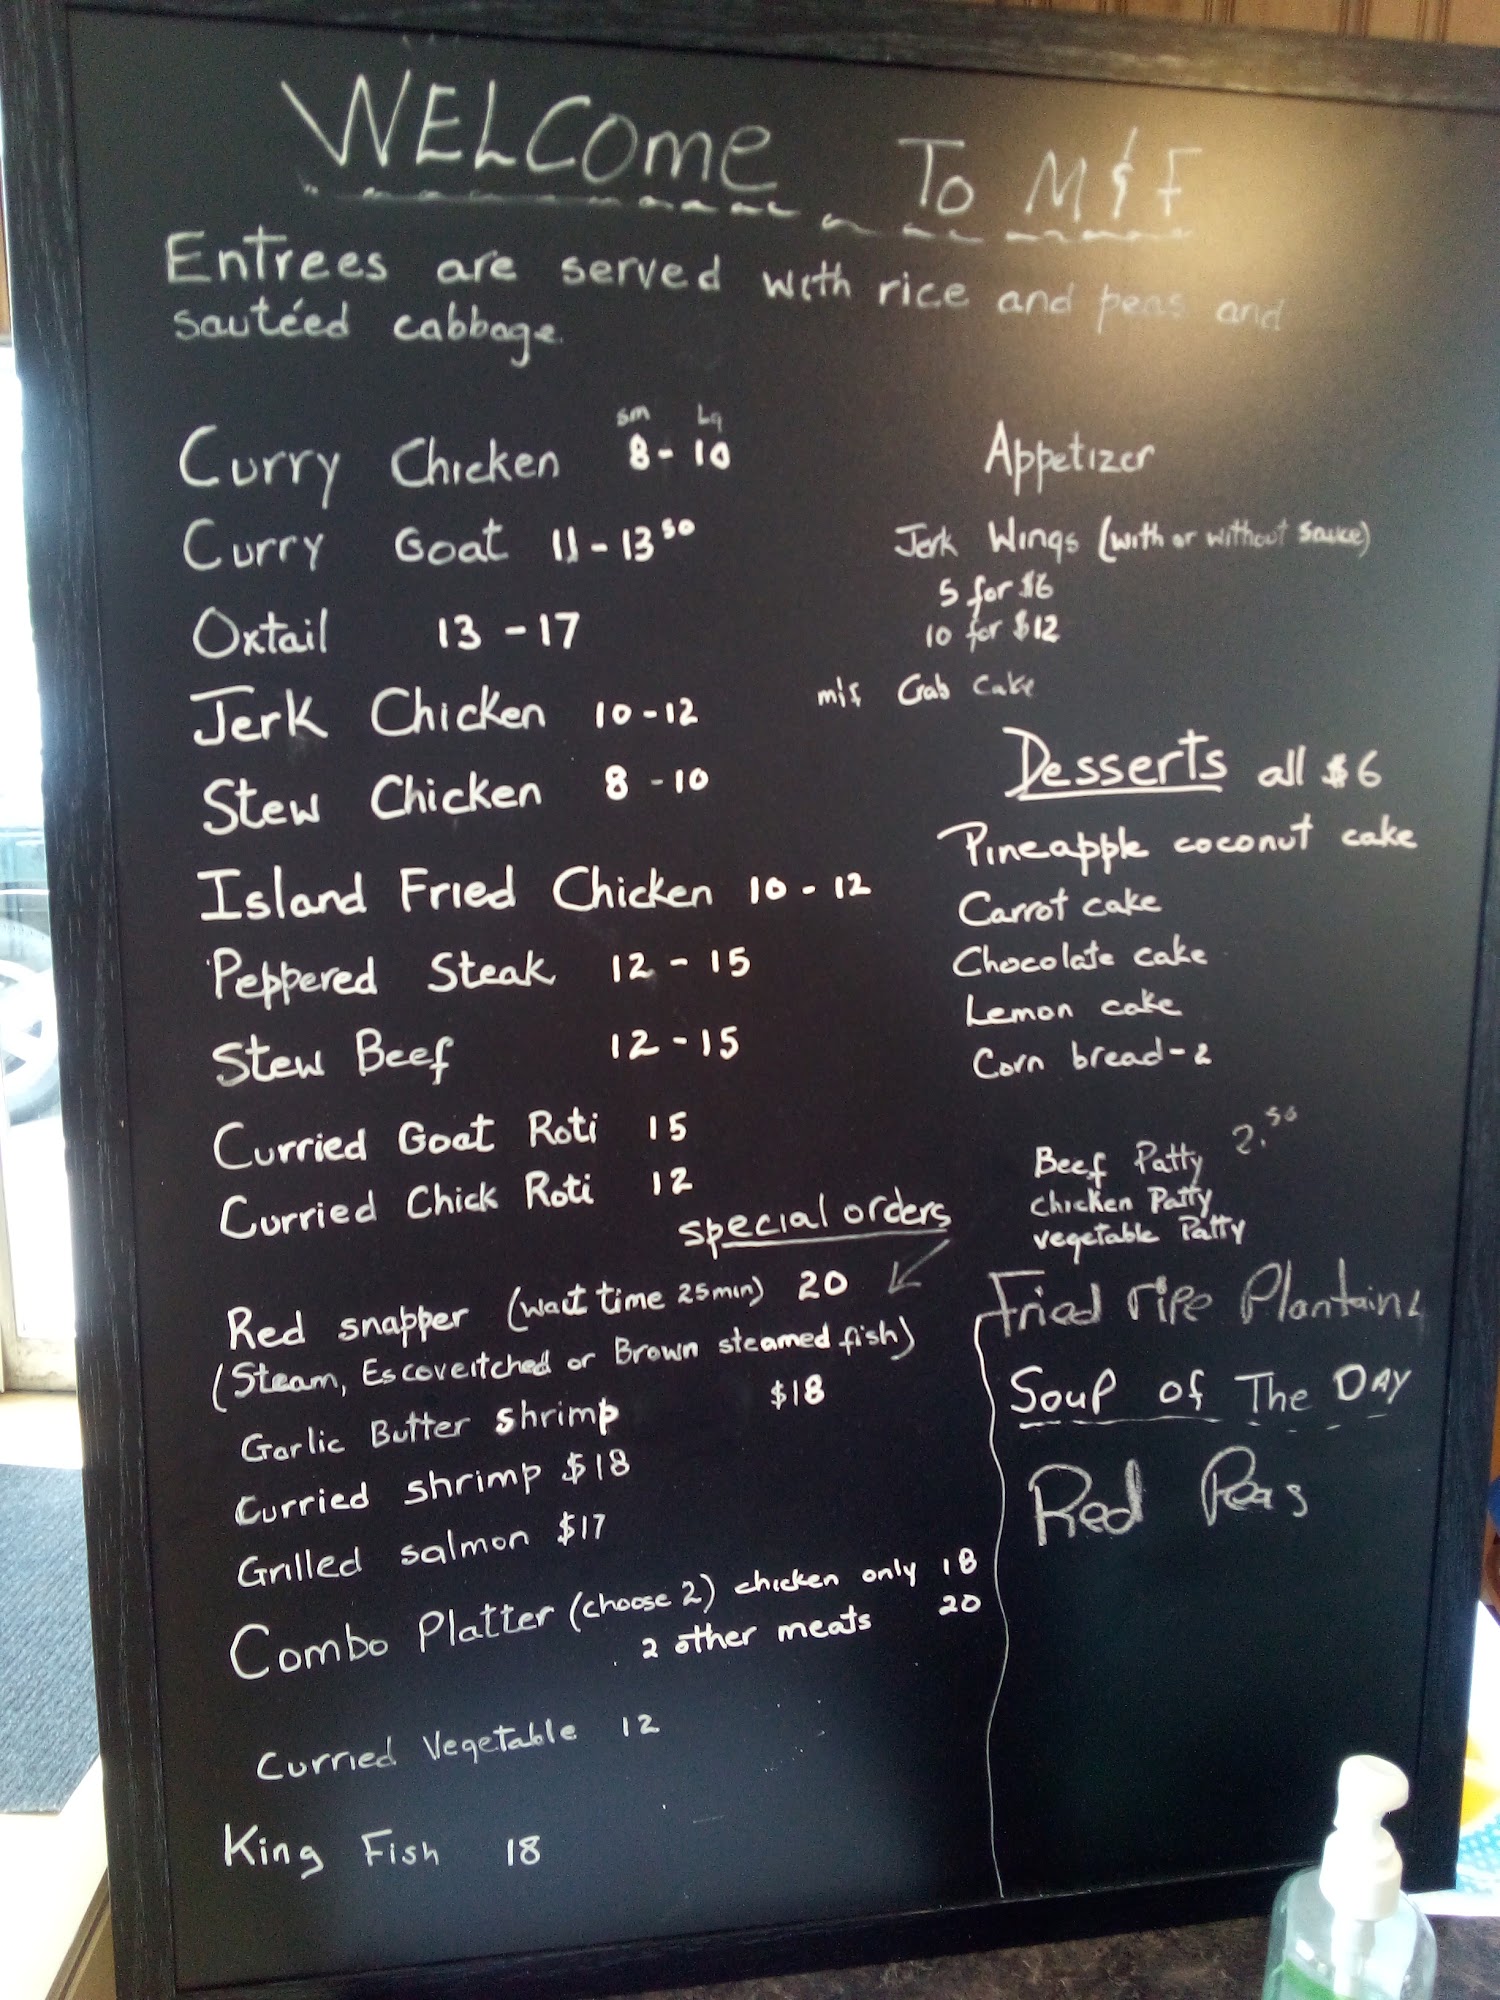 WELCome To M & F
Entrees are served with rice and peas and
sautéed cabbage.
sm Lg
Curry Chicken 8 - 10
Curry Goat 11 - 13 50
Oxtail 13 - 17
Jerk Chicken 10 - 12
Stew Chicken 8 - 10
Island Fried Chicken 10 - 12
Peppered Steak 12 - 15
Stew Beef 12 - 15
Curried Goat Roti 15
Curried Chick Roti 12
special orders
Red snapper (wait time 25min) 20
(Steam, Escoveitched or Brown steamed fish)
Garlic Butter shrimp $18
Curried shrimp $18
Grilled salmon $17
Combo Platter (choose 2) chicken only 18
2 other meats 20
Curried Vegetable 12
King Fish 18
Appetizer
Jerk Wings (with or without sauce)
5 for $6
10 for $12
Crab Cake
Desserts all $6
Pineapple coconut cake
Carrot cake
Chocolate cake
Lemon cake
Corn bread - 2
Beef Patty 2.50
Chicken Patty
vegetable Patty
Fried ripe Plantains
Soup of The DAY
Red Peas